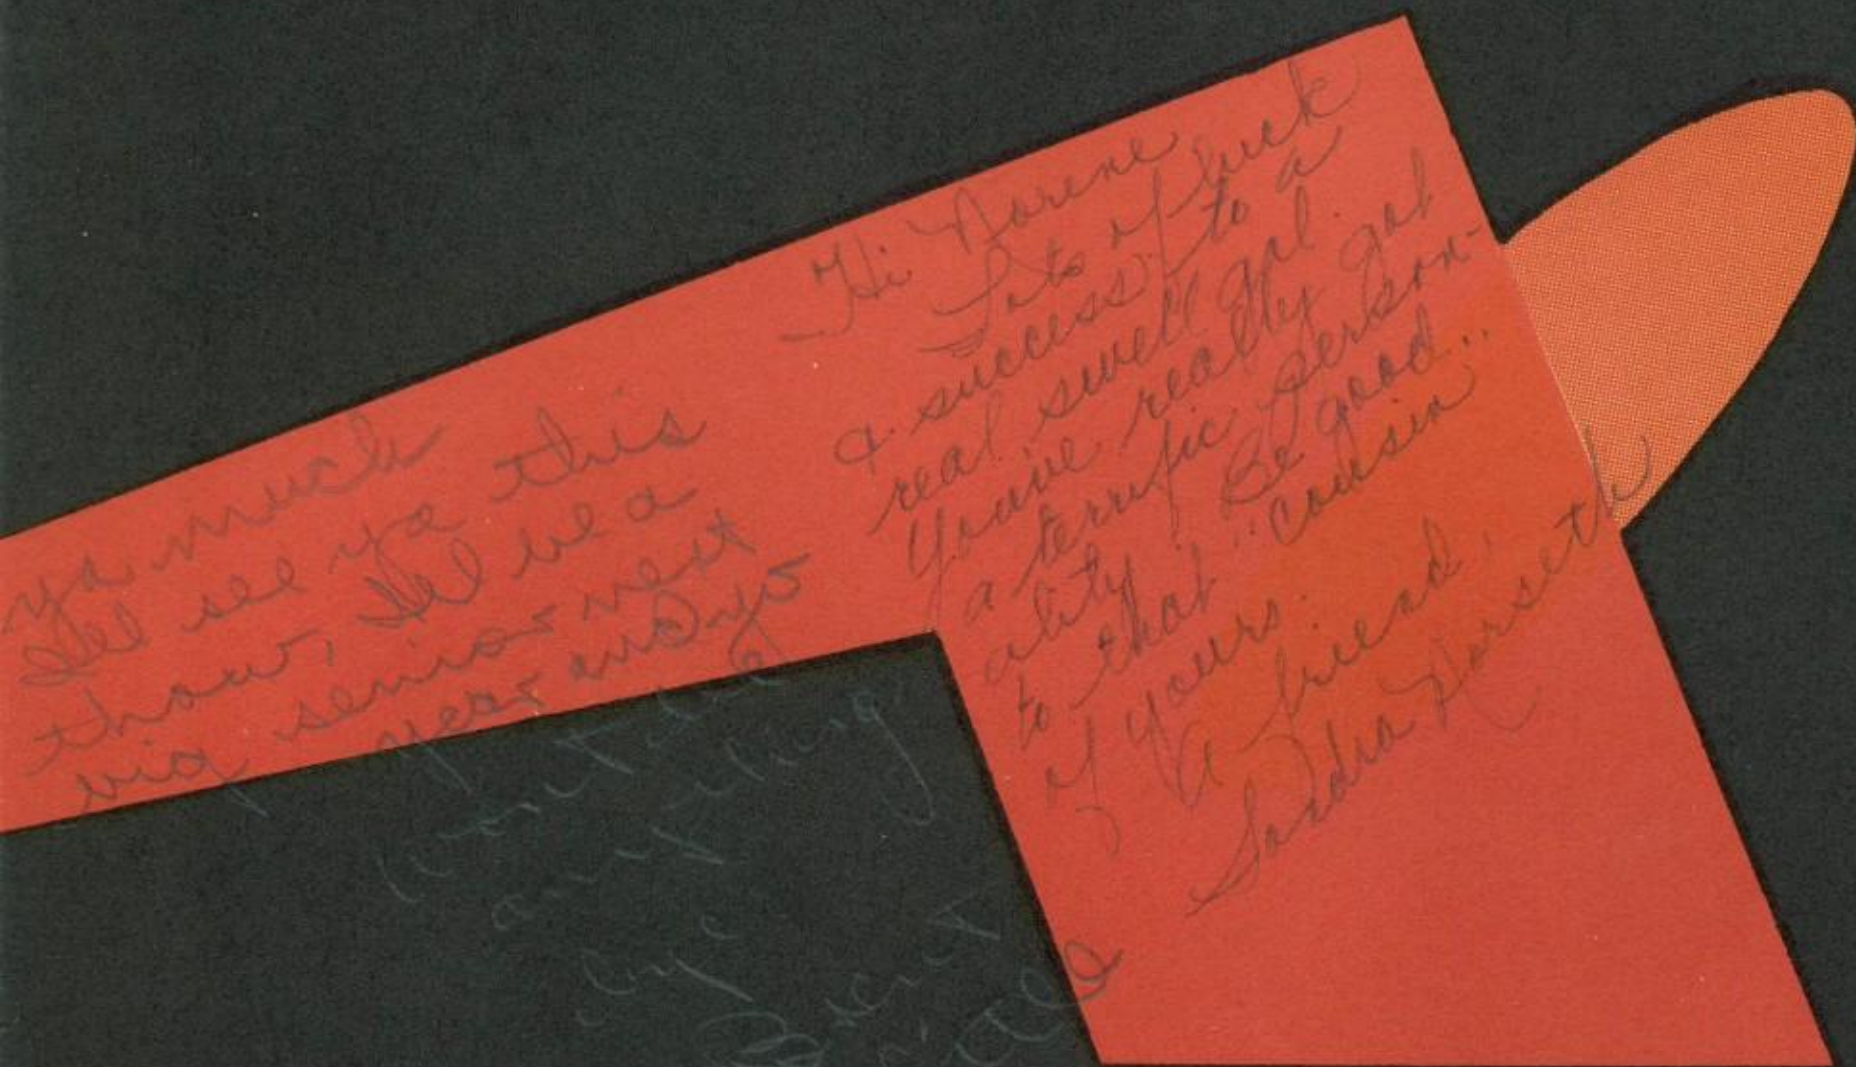 ya much
Ill see ya this
thour, Ill be a
big senior next
year and yo
wont be
anything
bye
Brent
Hi Norene
Lots of luck
& success to a
real swell gal.
You've really got
a terrific person-
ality. Be good..
to that "cousin"
of yours.
A friend,
Sandra Norseth